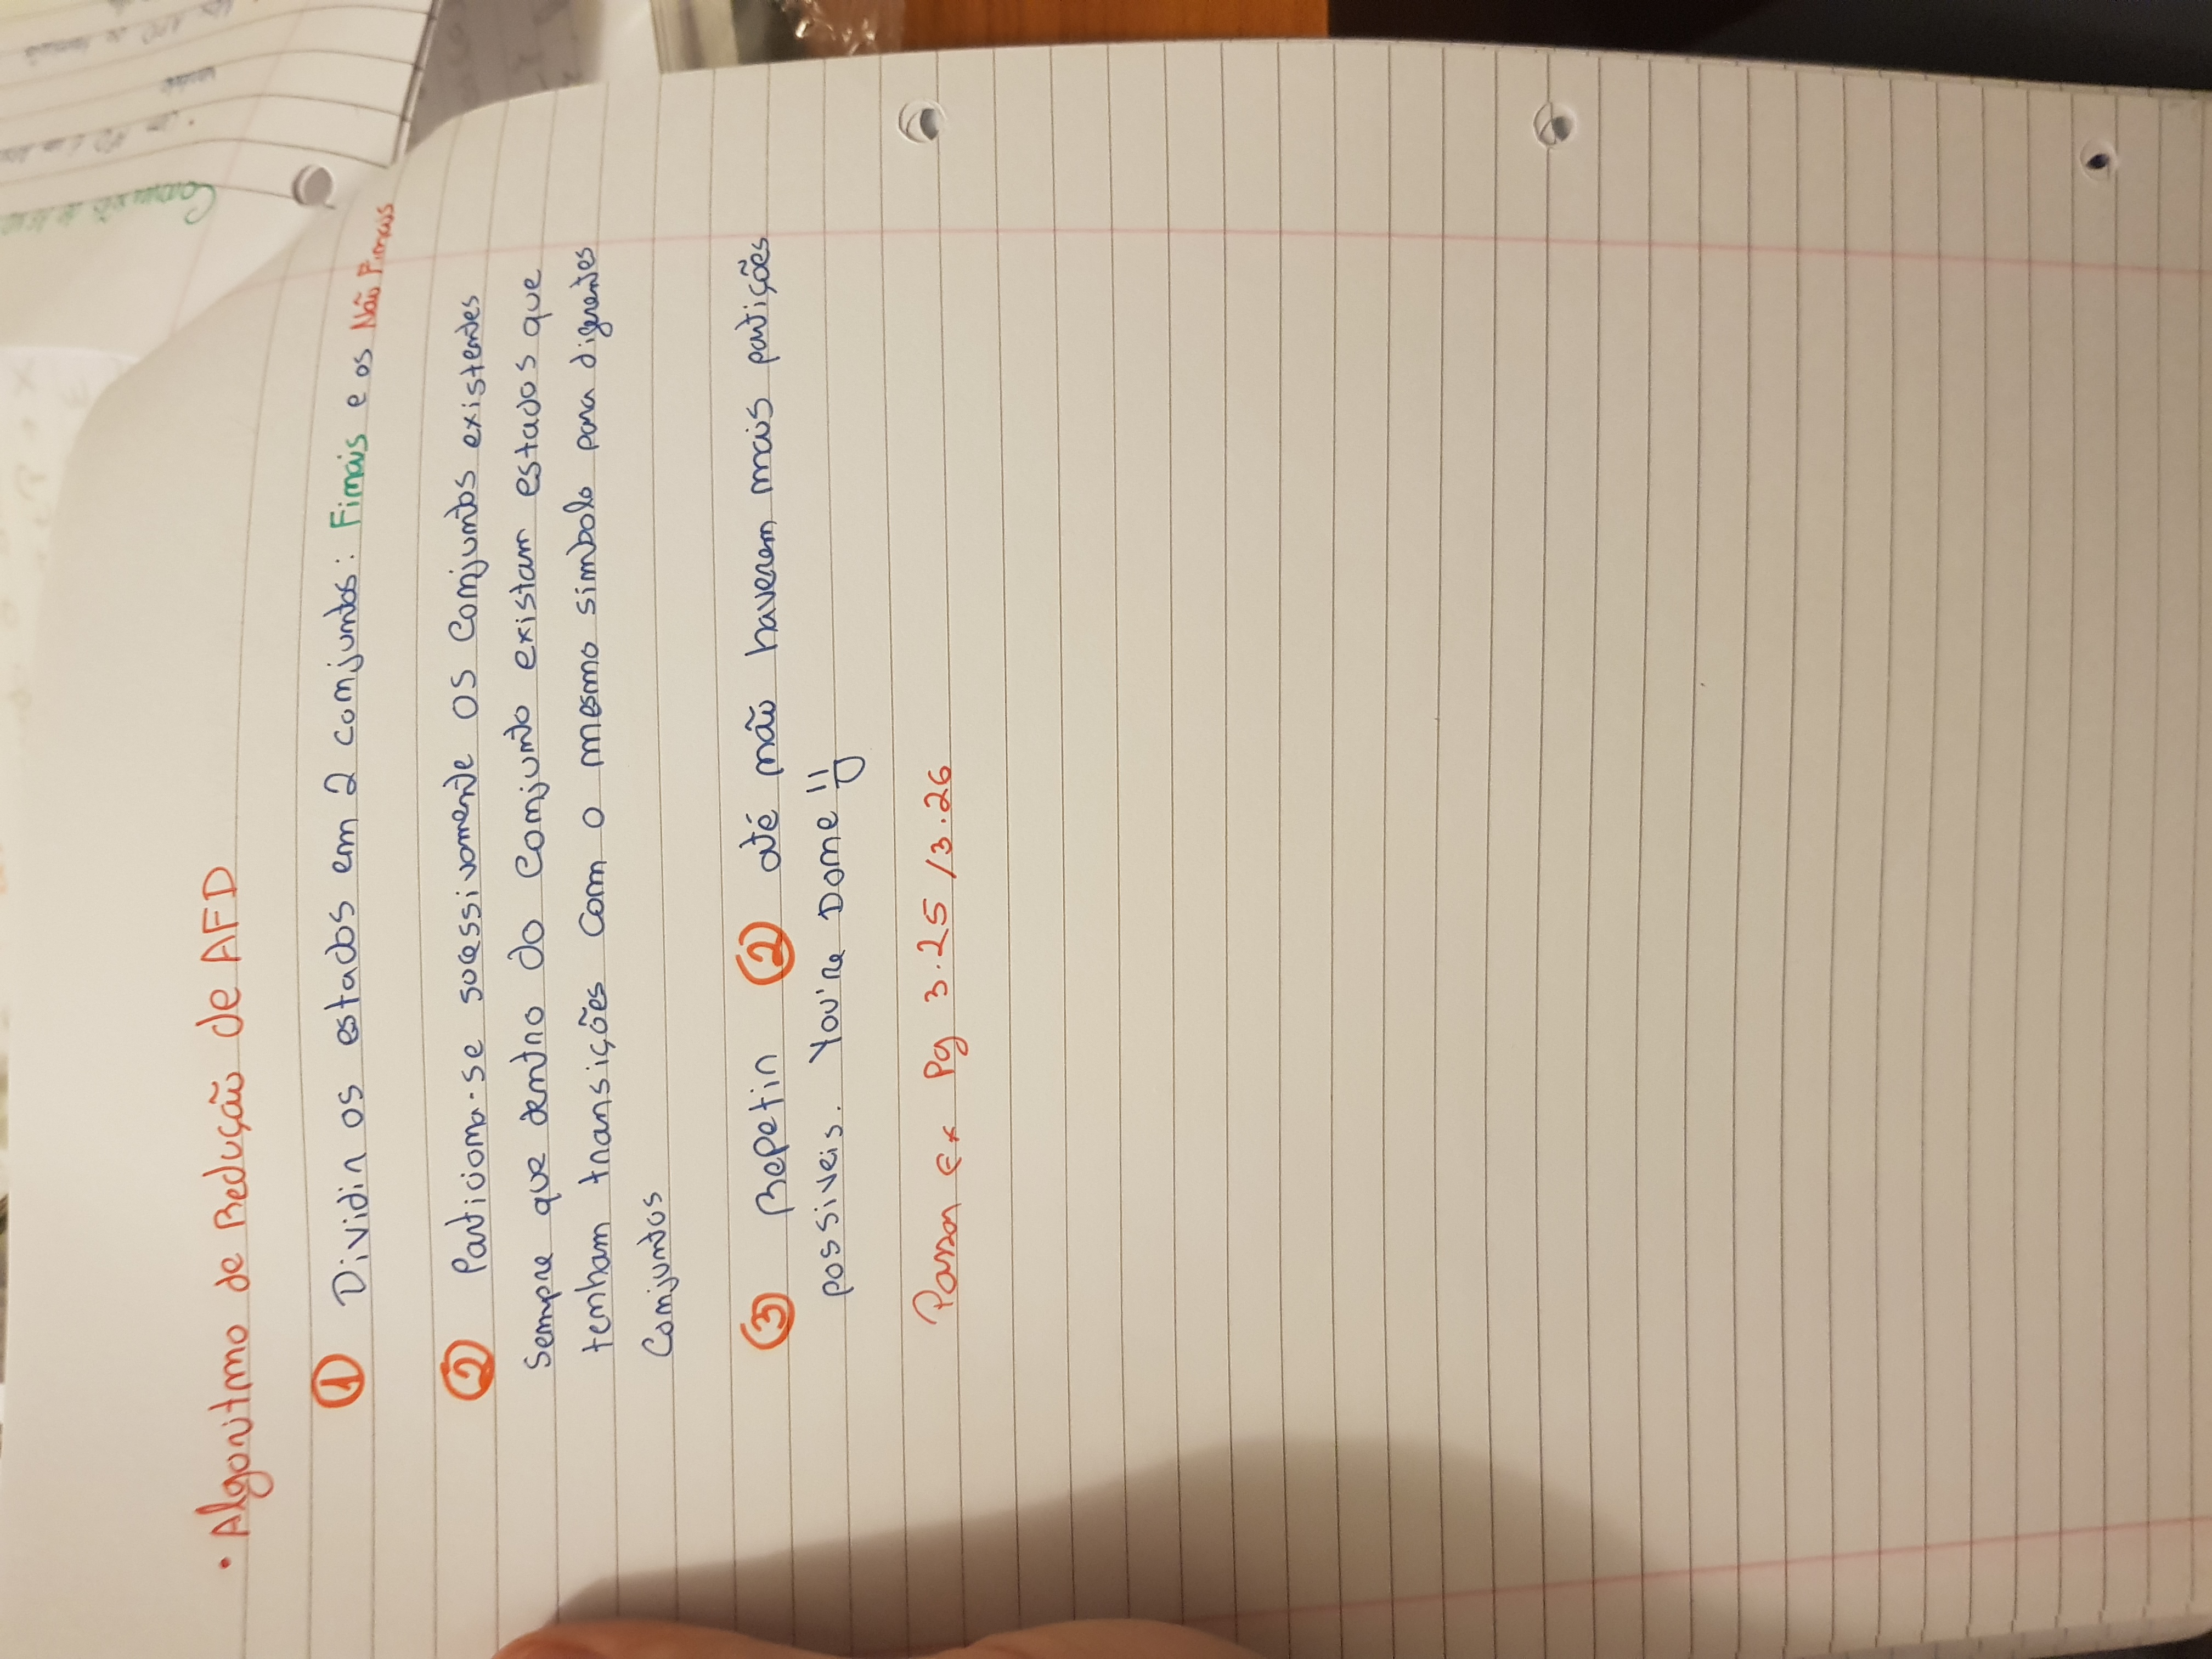 • Algoritmo de Redução de AFD
① Dividir os estados em 2 conjuntos: Finais e os Não Finais
② Particiona-se sucessivamente os conjuntos existentes
Sempre que dentro do conjunto existam estados que
tenham transições com o mesmo simbolo para diferentes
Conjuntos
③ Repetir ② até não haverem mais partições
possiveis. You're Done !!
Passar Ex Pg 3.25 / 3.26